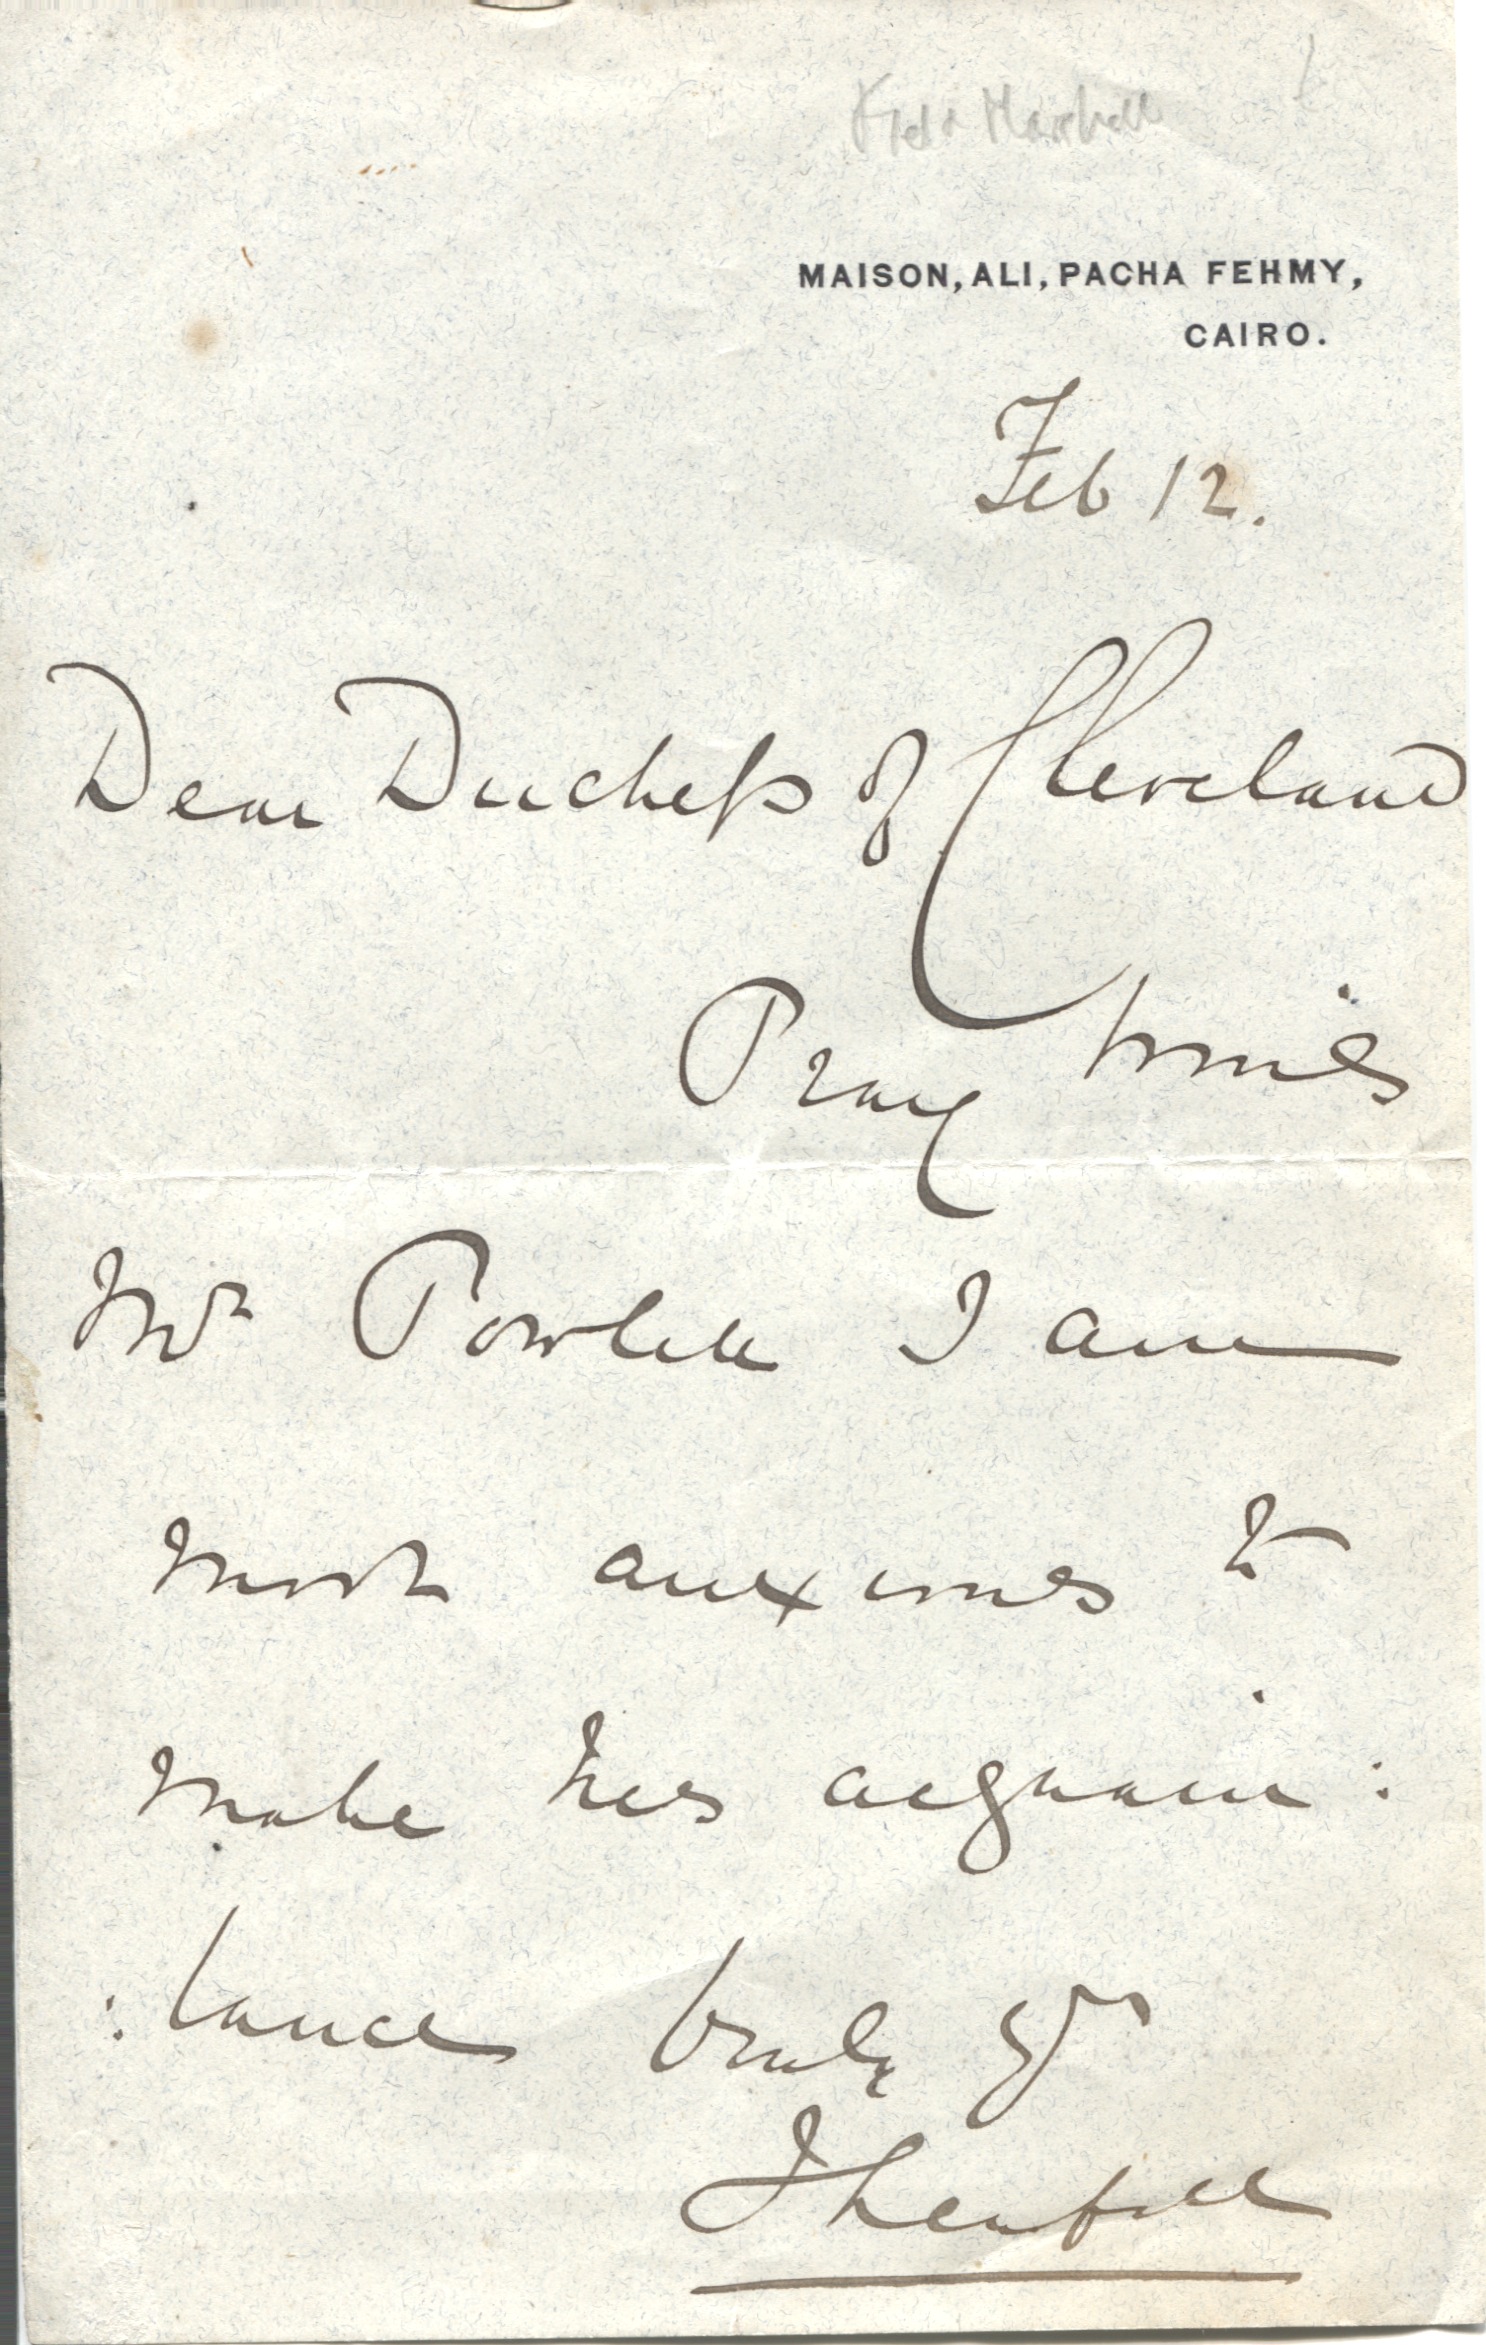 Field Marshall
MAISON, ALI, PACHA FEHMY,
CAIRO.
Feb 12.
Dear Duchess of Cleveland
Pray
Mr Powlett I am
most anxious to
make his acquain:
:tance truly yrs
F Grenfell